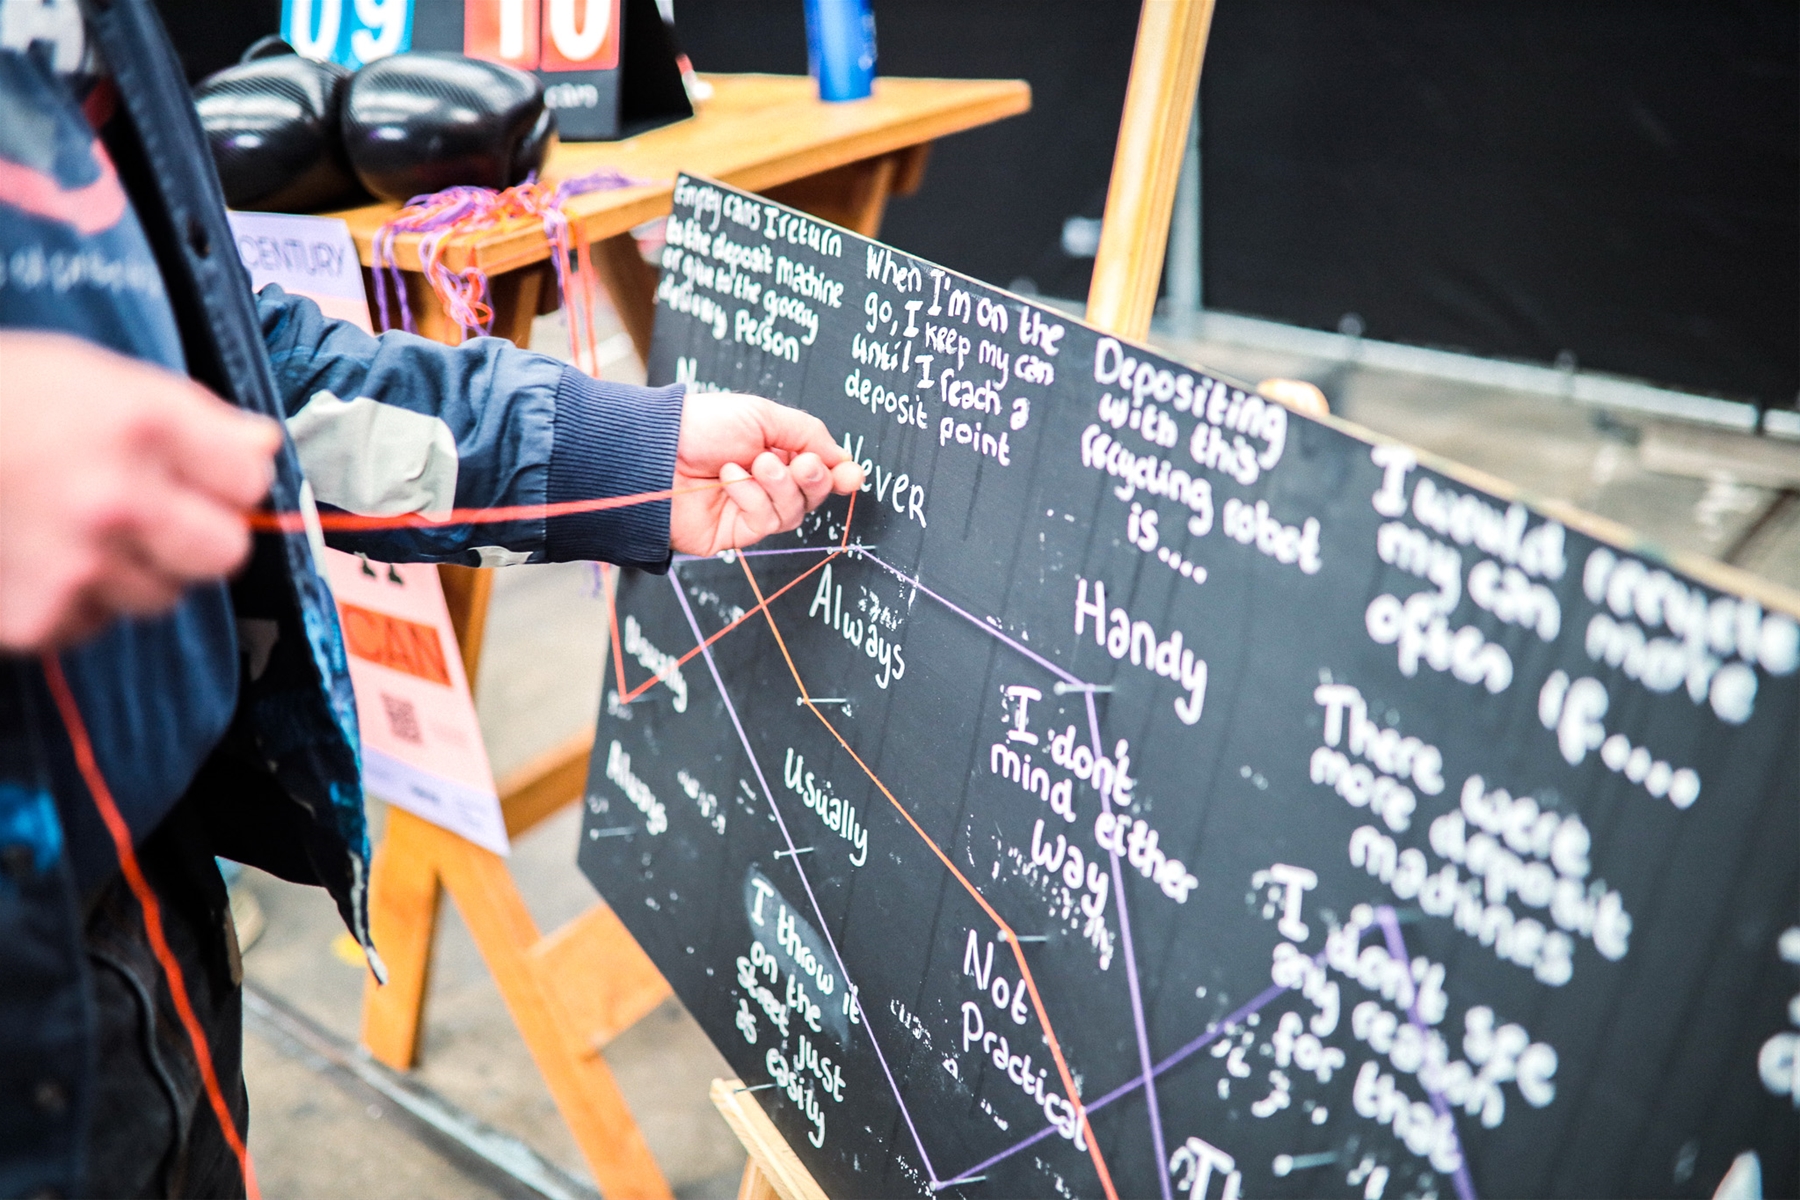 09 10
CENTURY
CAN
Empty cans I return
to the deposit machine
or give to the grocery
delivery person
Never
Usually
Always
When I'm on the
go, I keep my can
until I reach a
deposit point
Never
Always
Usually
I throw it
on the
street just
as easily
Depositing
with this
recycling robot
is....
Handy
I don't
mind either
way
Not
Practical
I would recycle
my can more
often if....
There were
more deposit
machines
I don't see
any reason
for that